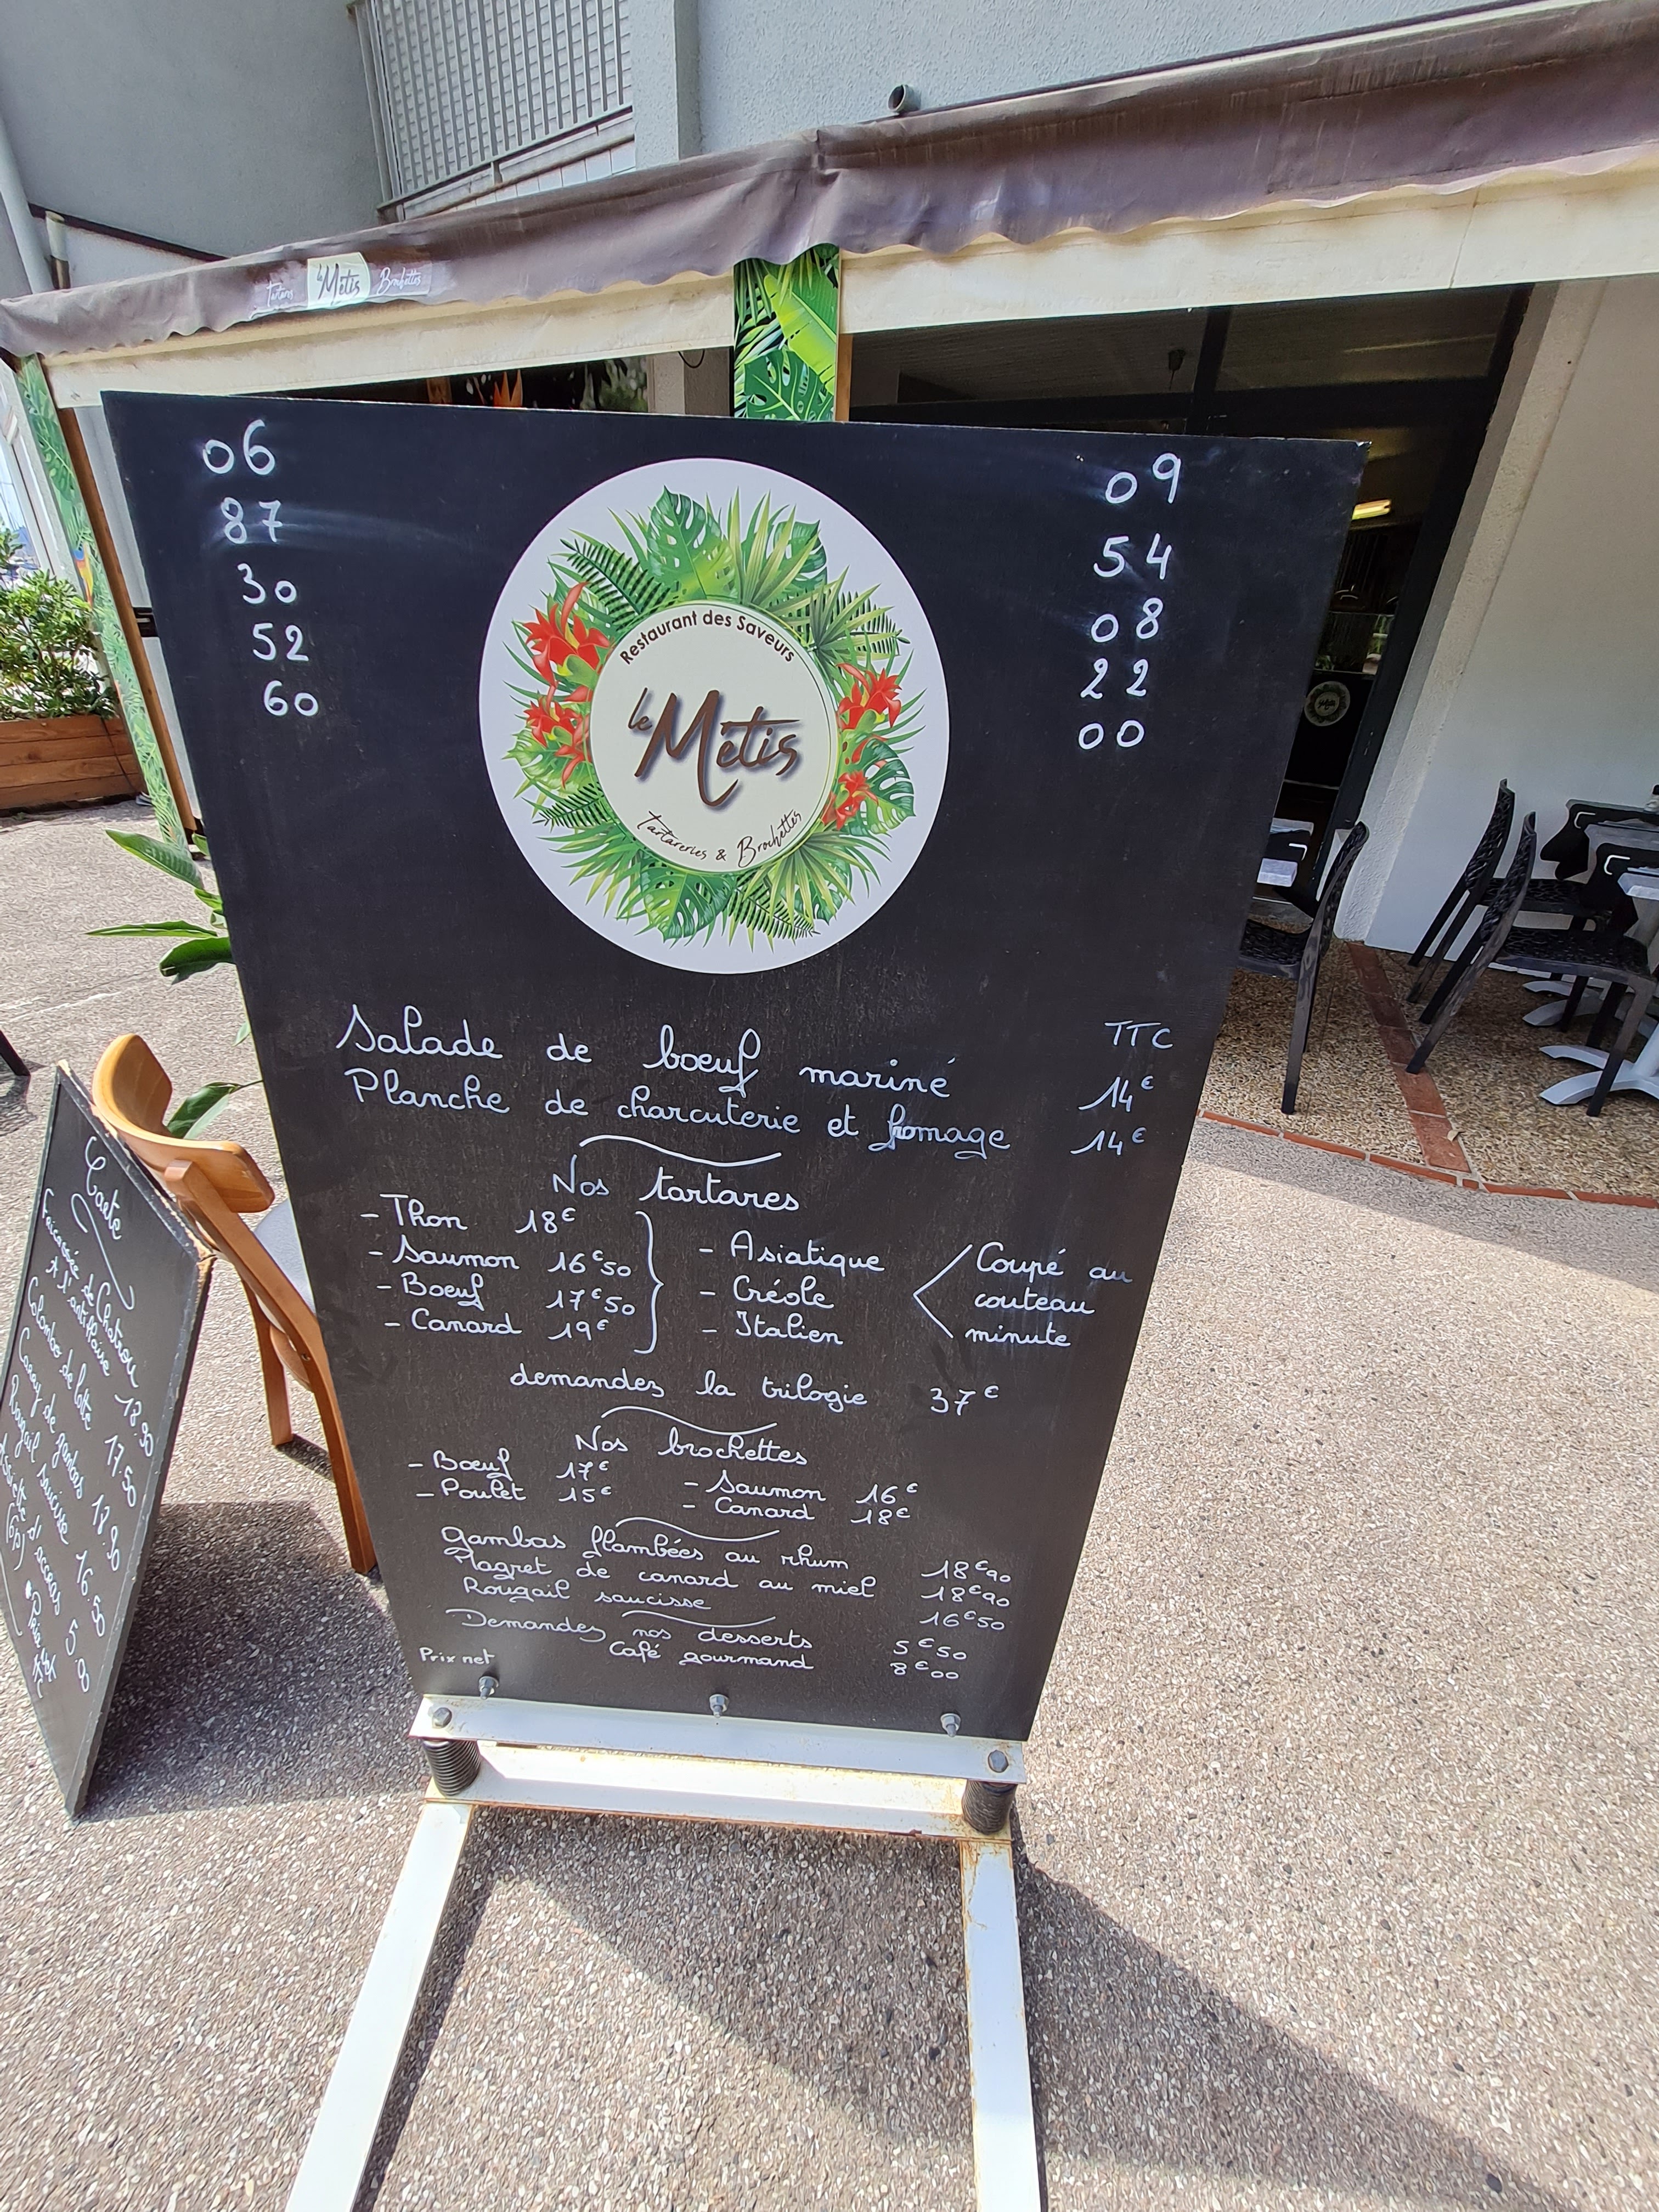 Tartares le Métis Brochettes
06
87
30
52
60
09
54
08
22
00
Restaurant des Saveurs
le Métis
Tartareries & Brochettes
TTC
Salade de boeuf mariné 14€
Planche de charcuterie et fromage 14€
Nos tartares
- Thon 18€
- Saumon 16€50
- Boeuf 17€50
- Canard 19€
- Asiatique
- Créole
- Italien
Coupé au
couteau
minute
demandez la trilogie 37€
Nos brochettes
- Boeuf 17€
- Poulet 15€
- Saumon 16€
- Canard 18€
Gambas flambées au rhum 18€90
Magret de canard au miel 18€90
Rougail saucisse 16€50
Demandez nos desserts 5€50
Café gourmand 8€00
Prix net
Carte
Fricassée de Chatrou
à l'antillaise 18.90
Colombo de lotte 17.50
Curry de gambas 18.90
Rougail saucisse 16.50
Assiette d'accras 5
(6p) 8